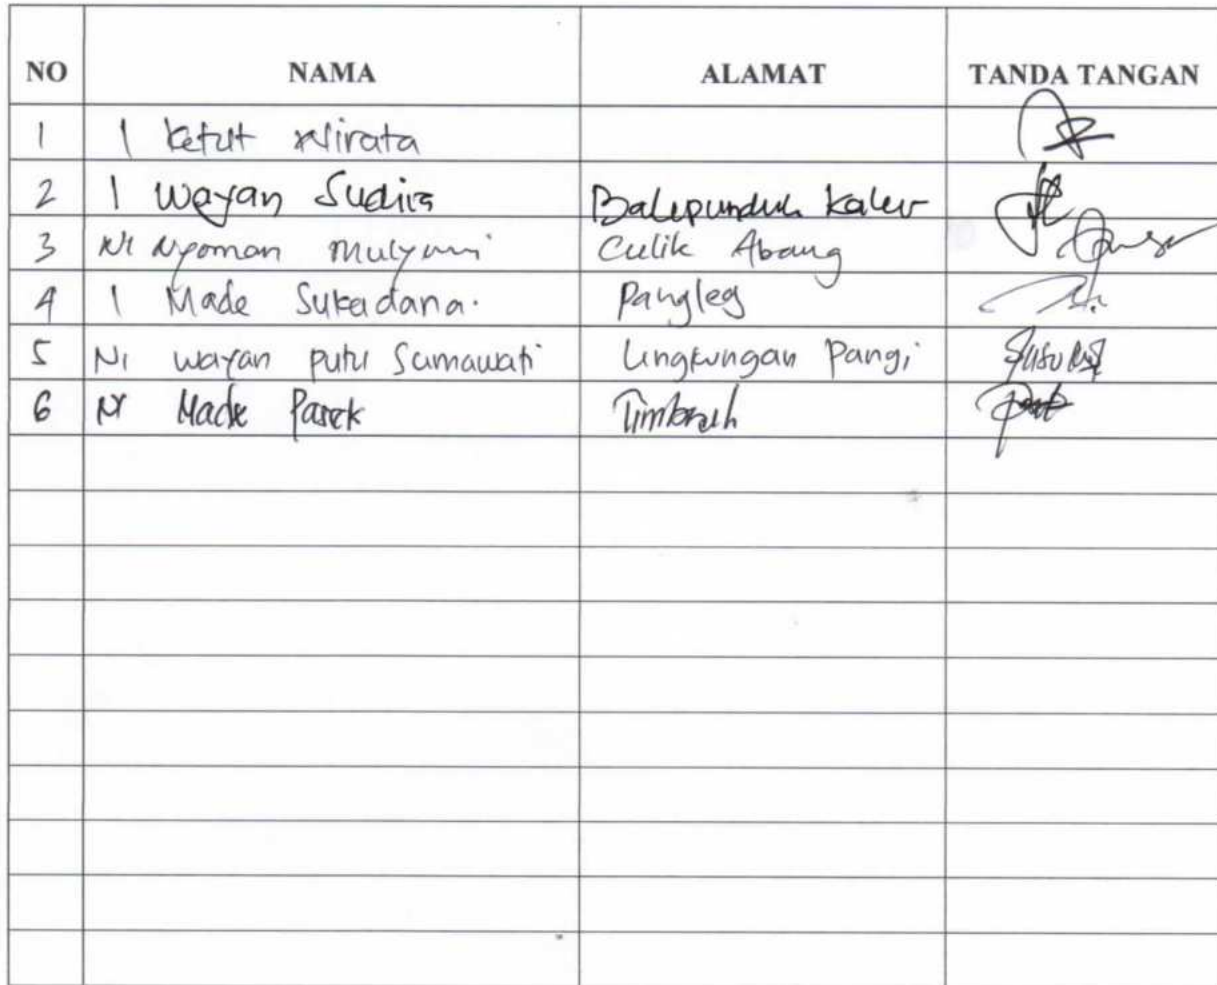 NO NAMA ALAMAT TANDA TANGAN
1 I Ketut Wirata
2 I Wayan Sudira Balepunduk Kaler
3 Ni Nyoman Mulyani Culik Abang
4 I Made Sukadana. Pangleg
5 Ni Wayan Putu Sumawati Lingkungan Pangi
6 Ni Made Parek Timbrah